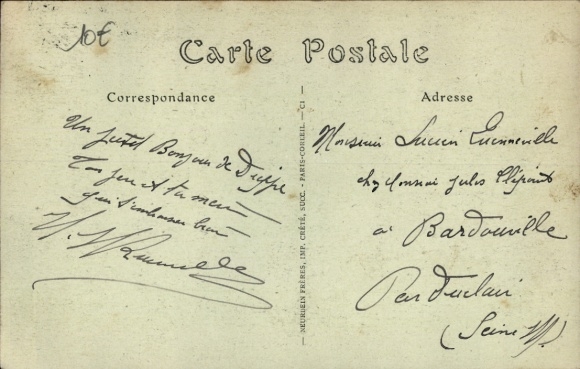 10€
Carte Postale
Correspondance
Adresse
Un petit Bonjour de Dieppe
Ton père et ta mère
qui t'embrasse bien
NEURDEIN FRÈRES, IMP. CRÉTÉ, SUCC. - PARIS-CORBEIL. - CI
Monsieur Lucien Quenneville
chez Monsieur Jules
à Bardouville
Par Duclair
(Seine Inf)